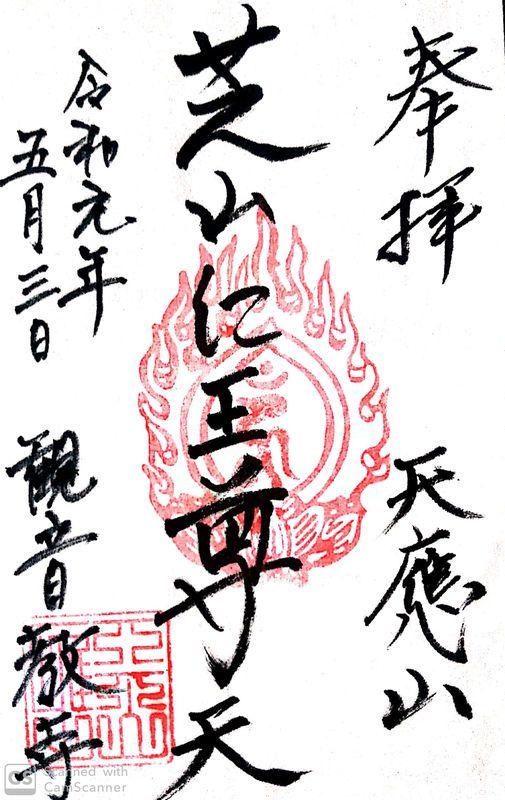 奉拝
天應山
芝山仁王尊天
令和元年
五月三日
観音教寺
CS Scanned with
CamScanner